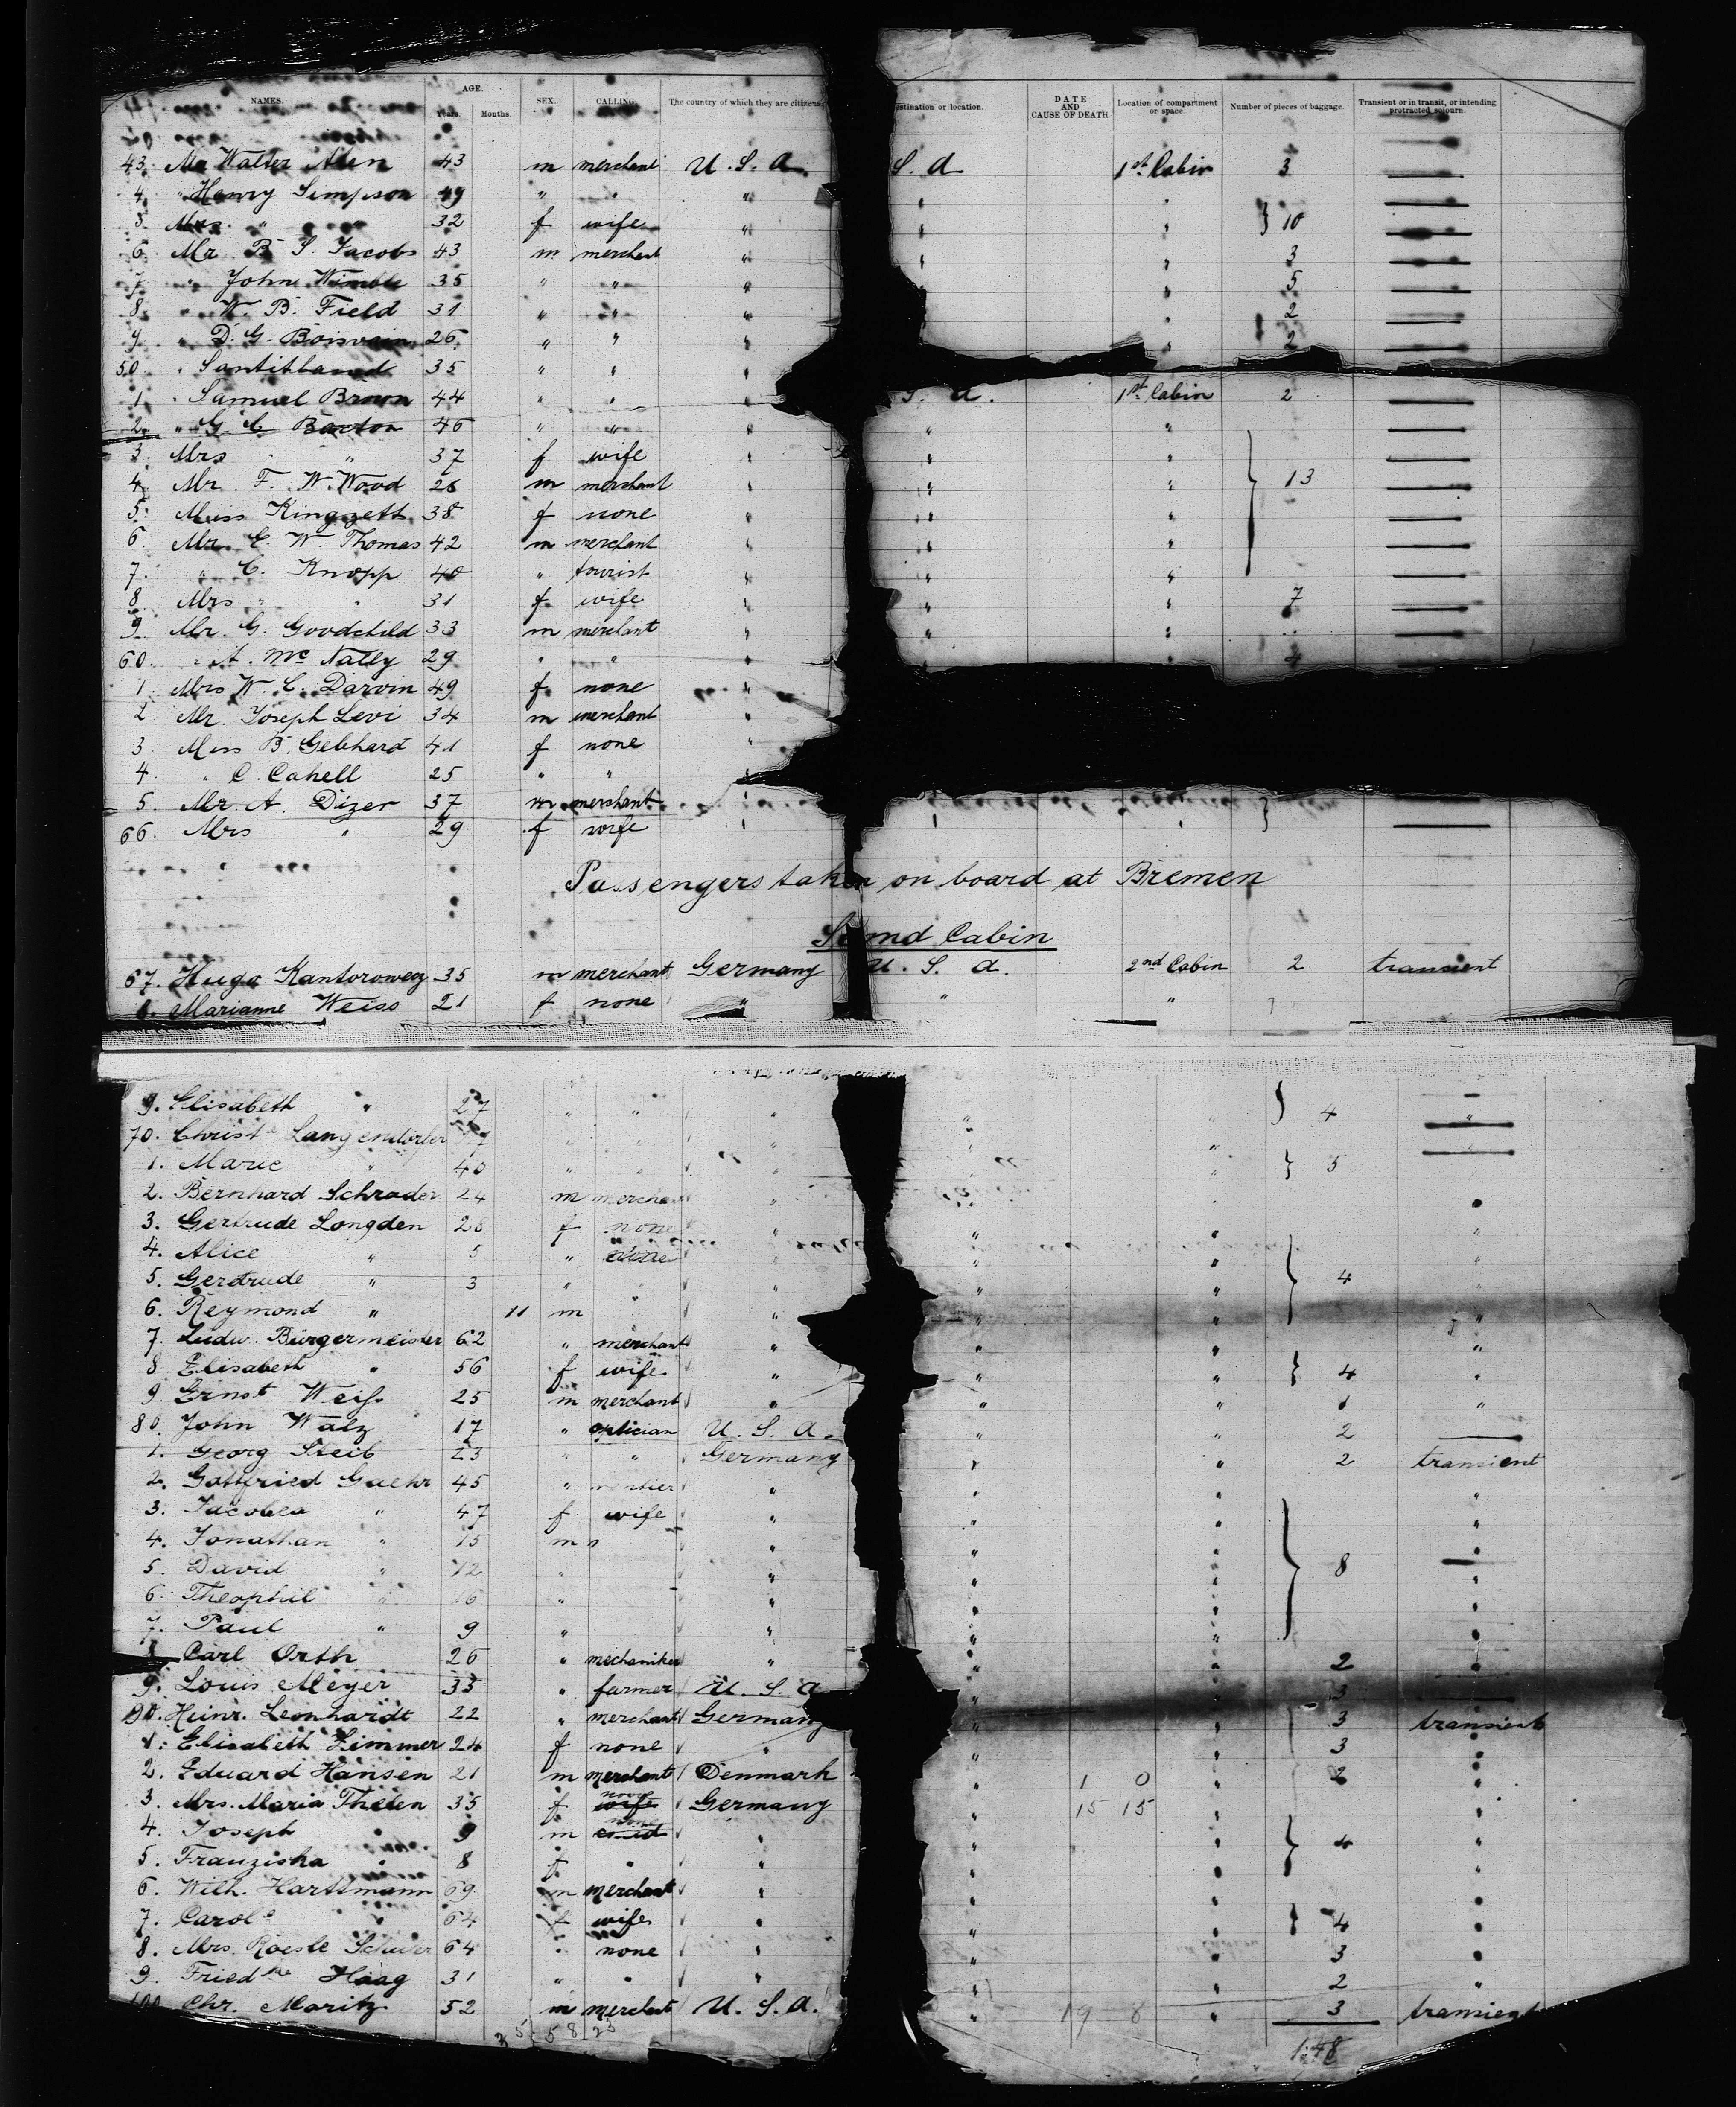 NAMES. AGE. Years. Months. SEX. CALLING. The country of which they are citizens. Destination or location. DATE AND CAUSE OF DEATH Location of compartment or space. Number of pieces of baggage. Transient or in transit, or intending protracted sojourn.
43. Mr Walter 43 m merchant U. S. A. S. A 1st Cabin 3 —
4. " Henry Simpson 49 " " " " " —
5. Mrs " 32 f wife " " " } 10 —
6. Mr B. S. Jacobs 43 m merchant " " " 3 —
7. " John Wimble 35 " " " " " 5 —
8. " W. B. Field 31 " " " " 2 —
9. " D. G. Boisvain 26 " " " " 2 —
50. " 35 " " "
1. " Samuel Brown 44 " " " S. A. 1st Cabin 2 —
2. " G. C. Barton 46 " " " " " —
3. Mrs " 37 f wife " " " —
4. Mr. F. W. Wood 26 m merchant " " " } 13 —
5. Miss Kingzett 38 f none " " " —
6. Mr. E. W. Thomas 42 m merchant " " " —
7. " C. Knopp 40 " tourist " " " —
8. Mrs " 31 f. wife " " " 7 —
9. Mr. G. Goodchild 33 m merchant " " " —
60. " A. Mc Nally 29 " " " " 4 —
1. Mrs W. C. Darvin 49 f. none "
2. Mr. Joseph Levi 34 m merchant "
3. Miss B. Gebhard 41 f none "
4. " C. Cahell 25 " "
5. Mr. A. Dizer 37 m merchant " —
66. Mrs " 29 f wife " " " } —
Passengers taken on board at Bremen
Second Cabin
67. Hugo Kantorowicz 35 m merchant Germany U. S. A. 2nd Cabin 2 transient
8. Marianne Weiss 21 f none " " "
9. Elisabeth " 27 " " " " " } 4 "
70. Christe Langendörfer " " " " " "
1. Marie " 40 " " " " } 5
2. Bernhard Schroder 24 m merchant "
3. Gertrude Longden 28 f none " " " "
4. Alice " 5 " " " " "
5. Gertrude " 3 " " " " } 4 "
6. Reymond " 11 m " " " " "
7. Ludw. Bürgermeister 62 " merchant " " " "
8 Elisabeth " 56 f wife " " " } 4 "
9 Ernst Weiss 25 m merchant " " " 1 "
80. John Walz 17 " optician U. S. A. " " 2 —
1. Georg Steib 23 " " Germany " " 2 transient
2. Gottfried Gaehr 45 " rentier " " " "
3. Jacobea " 47 f wife " " " "
4. Jonathan " 15 m " " " " "
5. David " 12 " " " " } 8 "
6. Theophil " 16 " " " " "
7. Paul " 9 " " " " "
8 Carl Orth 26 " mechaniker " " " 2 "
9. Louis Meyer 33 " farmer U. S. A " " 3 —
90. Heinr. Leonhardt 22 " merchant Germany " " 3 transient
1. Elisabeth Zimmer 24 f none " " " 3 "
2. Eduard Hansen 21 m merchant Denmark " 1 0 " 2 "
3. Mrs. Maria Thelen 35 f none wife Germany " 15 15 " "
4. Joseph " 9 m child " " " } 4 "
5. Franziska " 8 f " " " " "
6. Wilh. Harttmann 69 m merchant " " " "
7. Carole " 64 f wife " " " } 4 "
8. Mrs. Roesle 64 " none " " " 3 "
9. Friedke Haag 31 " " " " " 2 "
100 Chr. Moritz 52 m merchant U. S. A. " 19 8 " 3 transient
148